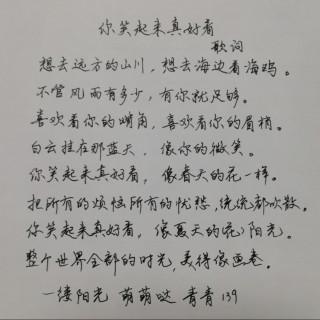 你笑起来真好看
歌词
想去远方的山川，想去海边看海鸥。
不管风雨有多少，有你就足够。
喜欢看你的嘴角，喜欢看你的眉梢。
白云挂在那蓝天，像你的微笑。
你笑起来真好看，像春天的花一样。
把所有的烦恼所有的忧愁，统统都吹散。
你笑起来真好看，像夏天的阳光。
整个世界全部的时光，美得像画卷。
一缕阳光 萌萌哒 青青139